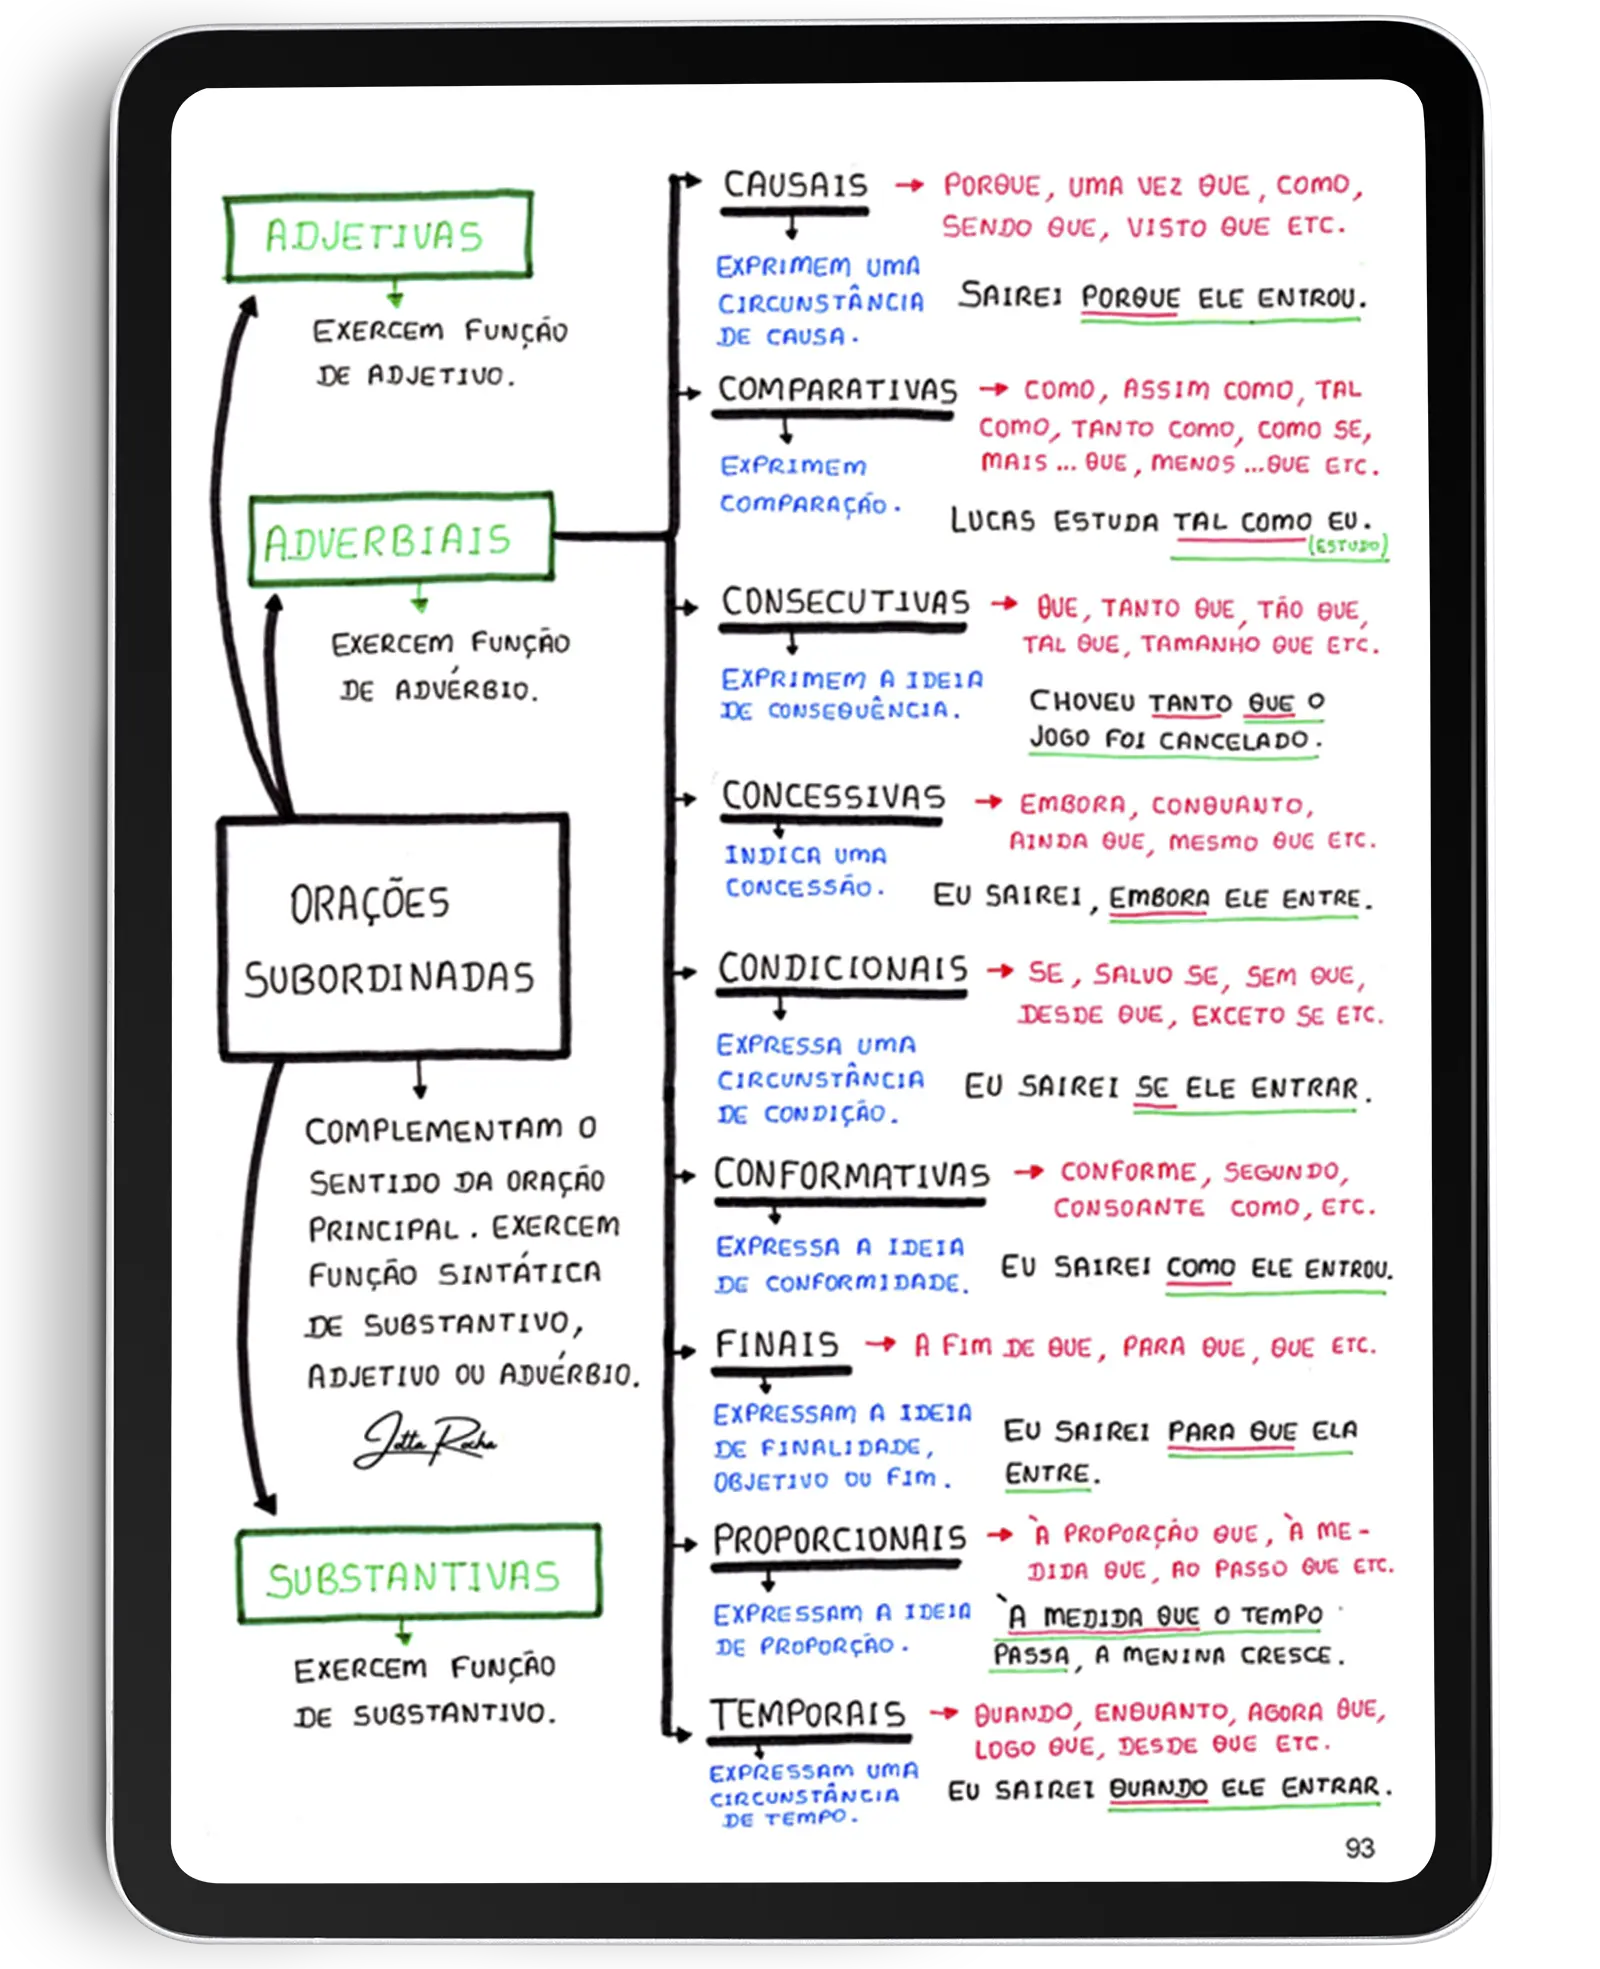 ADJETIVAS
EXERCEM FUNÇÃO
DE ADJETIVO.
ADVERBIAIS
EXERCEM FUNÇÃO
DE ADVÉRBIO.
ORAÇÕES
SUBORDINADAS
COMPLEMENTAM O
SENTIDO DA ORAÇÃO
PRINCIPAL. EXERCEM
FUNÇÃO SINTÁTICA
DE SUBSTANTIVO,
ADJETIVO OU ADVÉRBIO.
Jotta Rocha
SUBSTANTIVAS
EXERCEM FUNÇÃO
DE SUBSTANTIVO.
CAUSAIS → PORQUE, UMA VEZ QUE, COMO,
SENDO QUE, VISTO QUE ETC.
EXPRIMEM UMA
CIRCUNSTÂNCIA
DE CAUSA.
SAIREI PORQUE ELE ENTROU.
COMPARATIVAS → COMO, ASSIM COMO, TAL
COMO, TANTO COMO, COMO SE,
MAIS ... QUE, MENOS ... QUE ETC.
EXPRIMEM
COMPARAÇÃO.
LUCAS ESTUDA TAL COMO EU.
(ESTUDO)
CONSECUTIVAS → QUE, TANTO QUE, TÃO QUE,
TAL QUE, TAMANHO QUE ETC.
EXPRIMEM A IDEIA
DE CONSEQUÊNCIA.
CHOVEU TANTO QUE O
JOGO FOI CANCELADO.
CONCESSIVAS → EMBORA, CONQUANTO,
AINDA QUE, MESMO QUE ETC.
INDICA UMA
CONCESSÃO.
EU SAIREI, EMBORA ELE ENTRE.
CONDICIONAIS → SE, SALVO SE, SEM QUE,
DESDE QUE, EXCETO SE ETC.
EXPRESSA UMA
CIRCUNSTÂNCIA
DE CONDIÇÃO.
EU SAIREI SE ELE ENTRAR.
CONFORMATIVAS → CONFORME, SEGUNDO,
CONSOANTE COMO, ETC.
EXPRESSA A IDEIA
DE CONFORMIDADE.
EU SAIREI COMO ELE ENTROU.
FINAIS → A FIM DE QUE, PARA QUE, QUE ETC.
EXPRESSAM A IDEIA
DE FINALIDADE,
OBJETIVO OU FIM.
EU SAIREI PARA QUE ELA
ENTRE.
PROPORCIONAIS → À PROPORÇÃO QUE, À ME-
DIDA QUE, AO PASSO QUE ETC.
EXPRESSAM A IDEIA
DE PROPORÇÃO.
À MEDIDA QUE O TEMPO
PASSA, A MENINA CRESCE.
TEMPORAIS → QUANDO, ENQUANTO, AGORA QUE,
LOGO QUE, DESDE QUE ETC.
EXPRESSAM UMA
CIRCUNSTÂNCIA
DE TEMPO.
EU SAIREI QUANDO ELE ENTRAR.
93